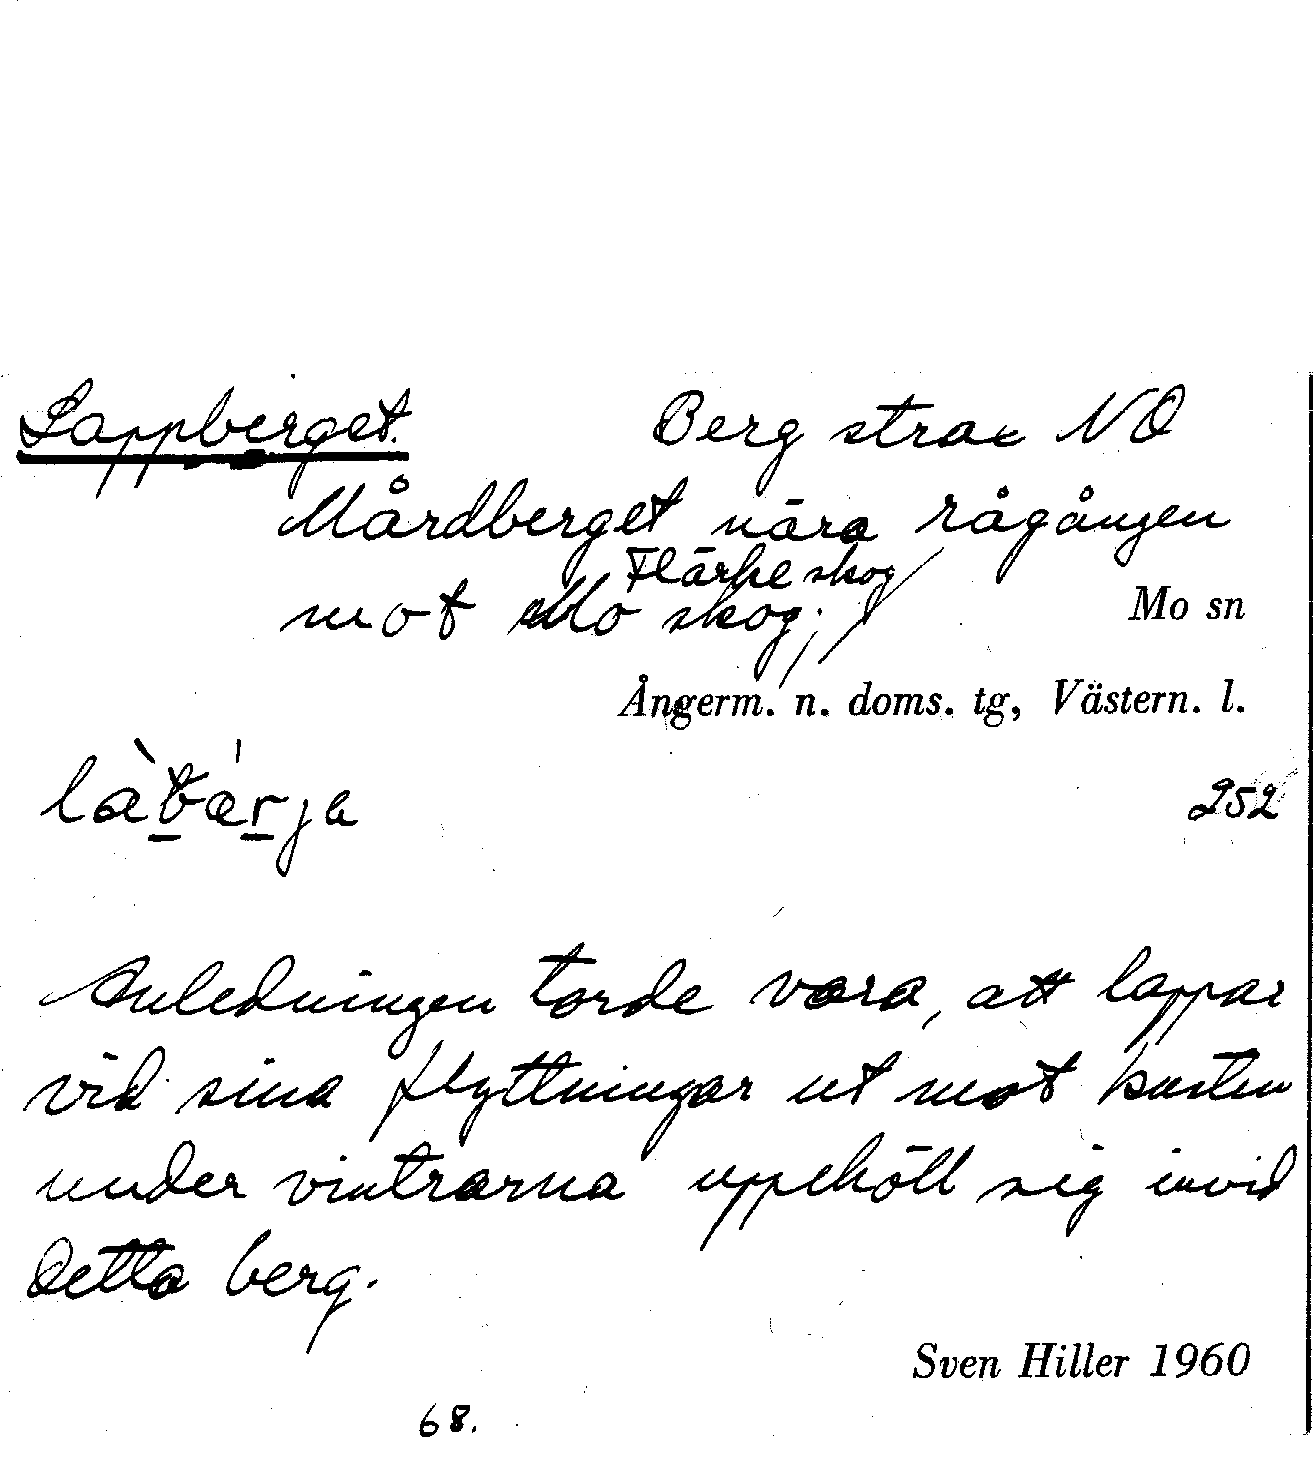 Lappberget. Berg strax NO
Mårdberget nära rågången
Flärke skog
mot Mo skog;
Mo sn
Ångerm. n. doms. tg, Västern. l.
252
Anledningen torde vara, att lappar
vid sina flyttningar ut mot kusten
under vintrarna uppehöll sig invid
detta berg.
Sven Hiller 1960
68.